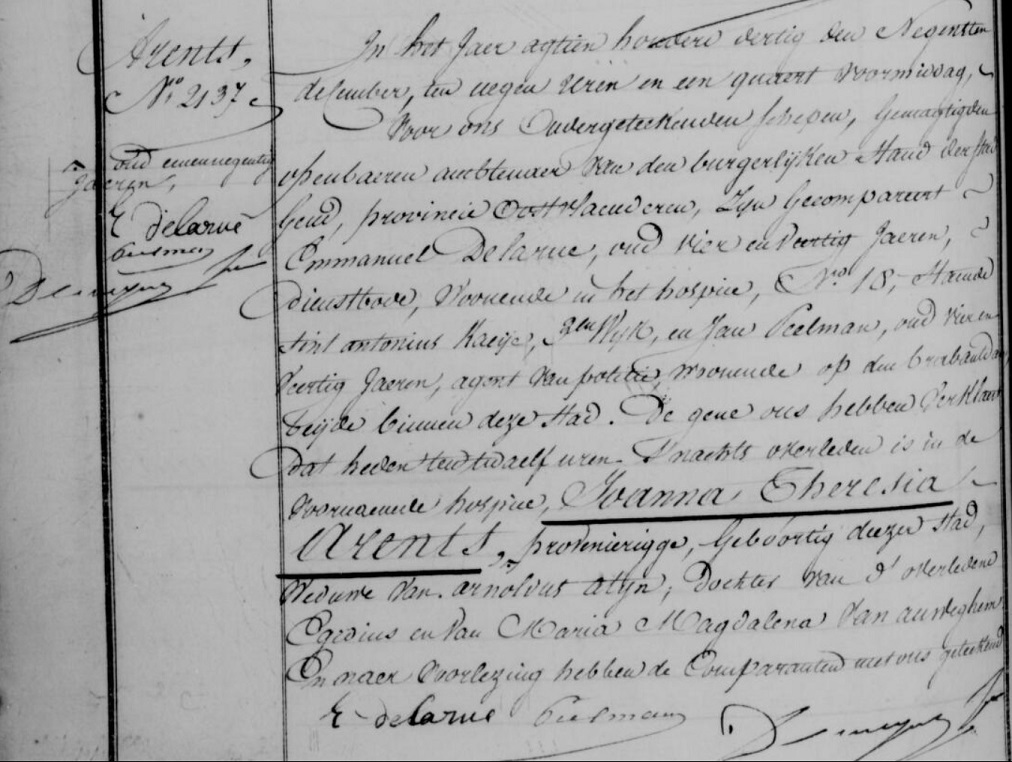 Arents,
N.º 2137
oud eenennegentig
Jaeren,
E delarue
Peelman
In het Jaer agtien honderd dertig den Negensten
december, ten negen Uren en een quaert Voormiddag,
Voor ons Ondergeteekenden schepen, Gemagtigden
openbaeren ambtenaer Van den burgerlijken Stand der Stad
Gend, provincie Oostvlaenderen, Zijn Gecompareert
Emmanuel Delarue, oud vier en Veertig Jaeren,
dienstbode, Woonende in het hospice, Nro 18, Staende
sint antonius Kaeije, Wijk, en Jan Peelman, oud vier en
Veertig Jaeren, agent Van politie, woonende op den brabandam
beijde binnen deze Stad. De gene ons hebben Verklaert
dat heden ten twaelf uren S'nachts overleden is in de
Voornaemde hospice, Joanna Theresia
Arents, provenierigge, Geboortig deezer Stad,
Weduwe Van arnoldus alijn, Dochter Van d'overledene
Egidius en Van Maria Magdalena Van auweghem
En naer Voorlezing hebben de Comparanten met ons geteekend
E delarue Peelman